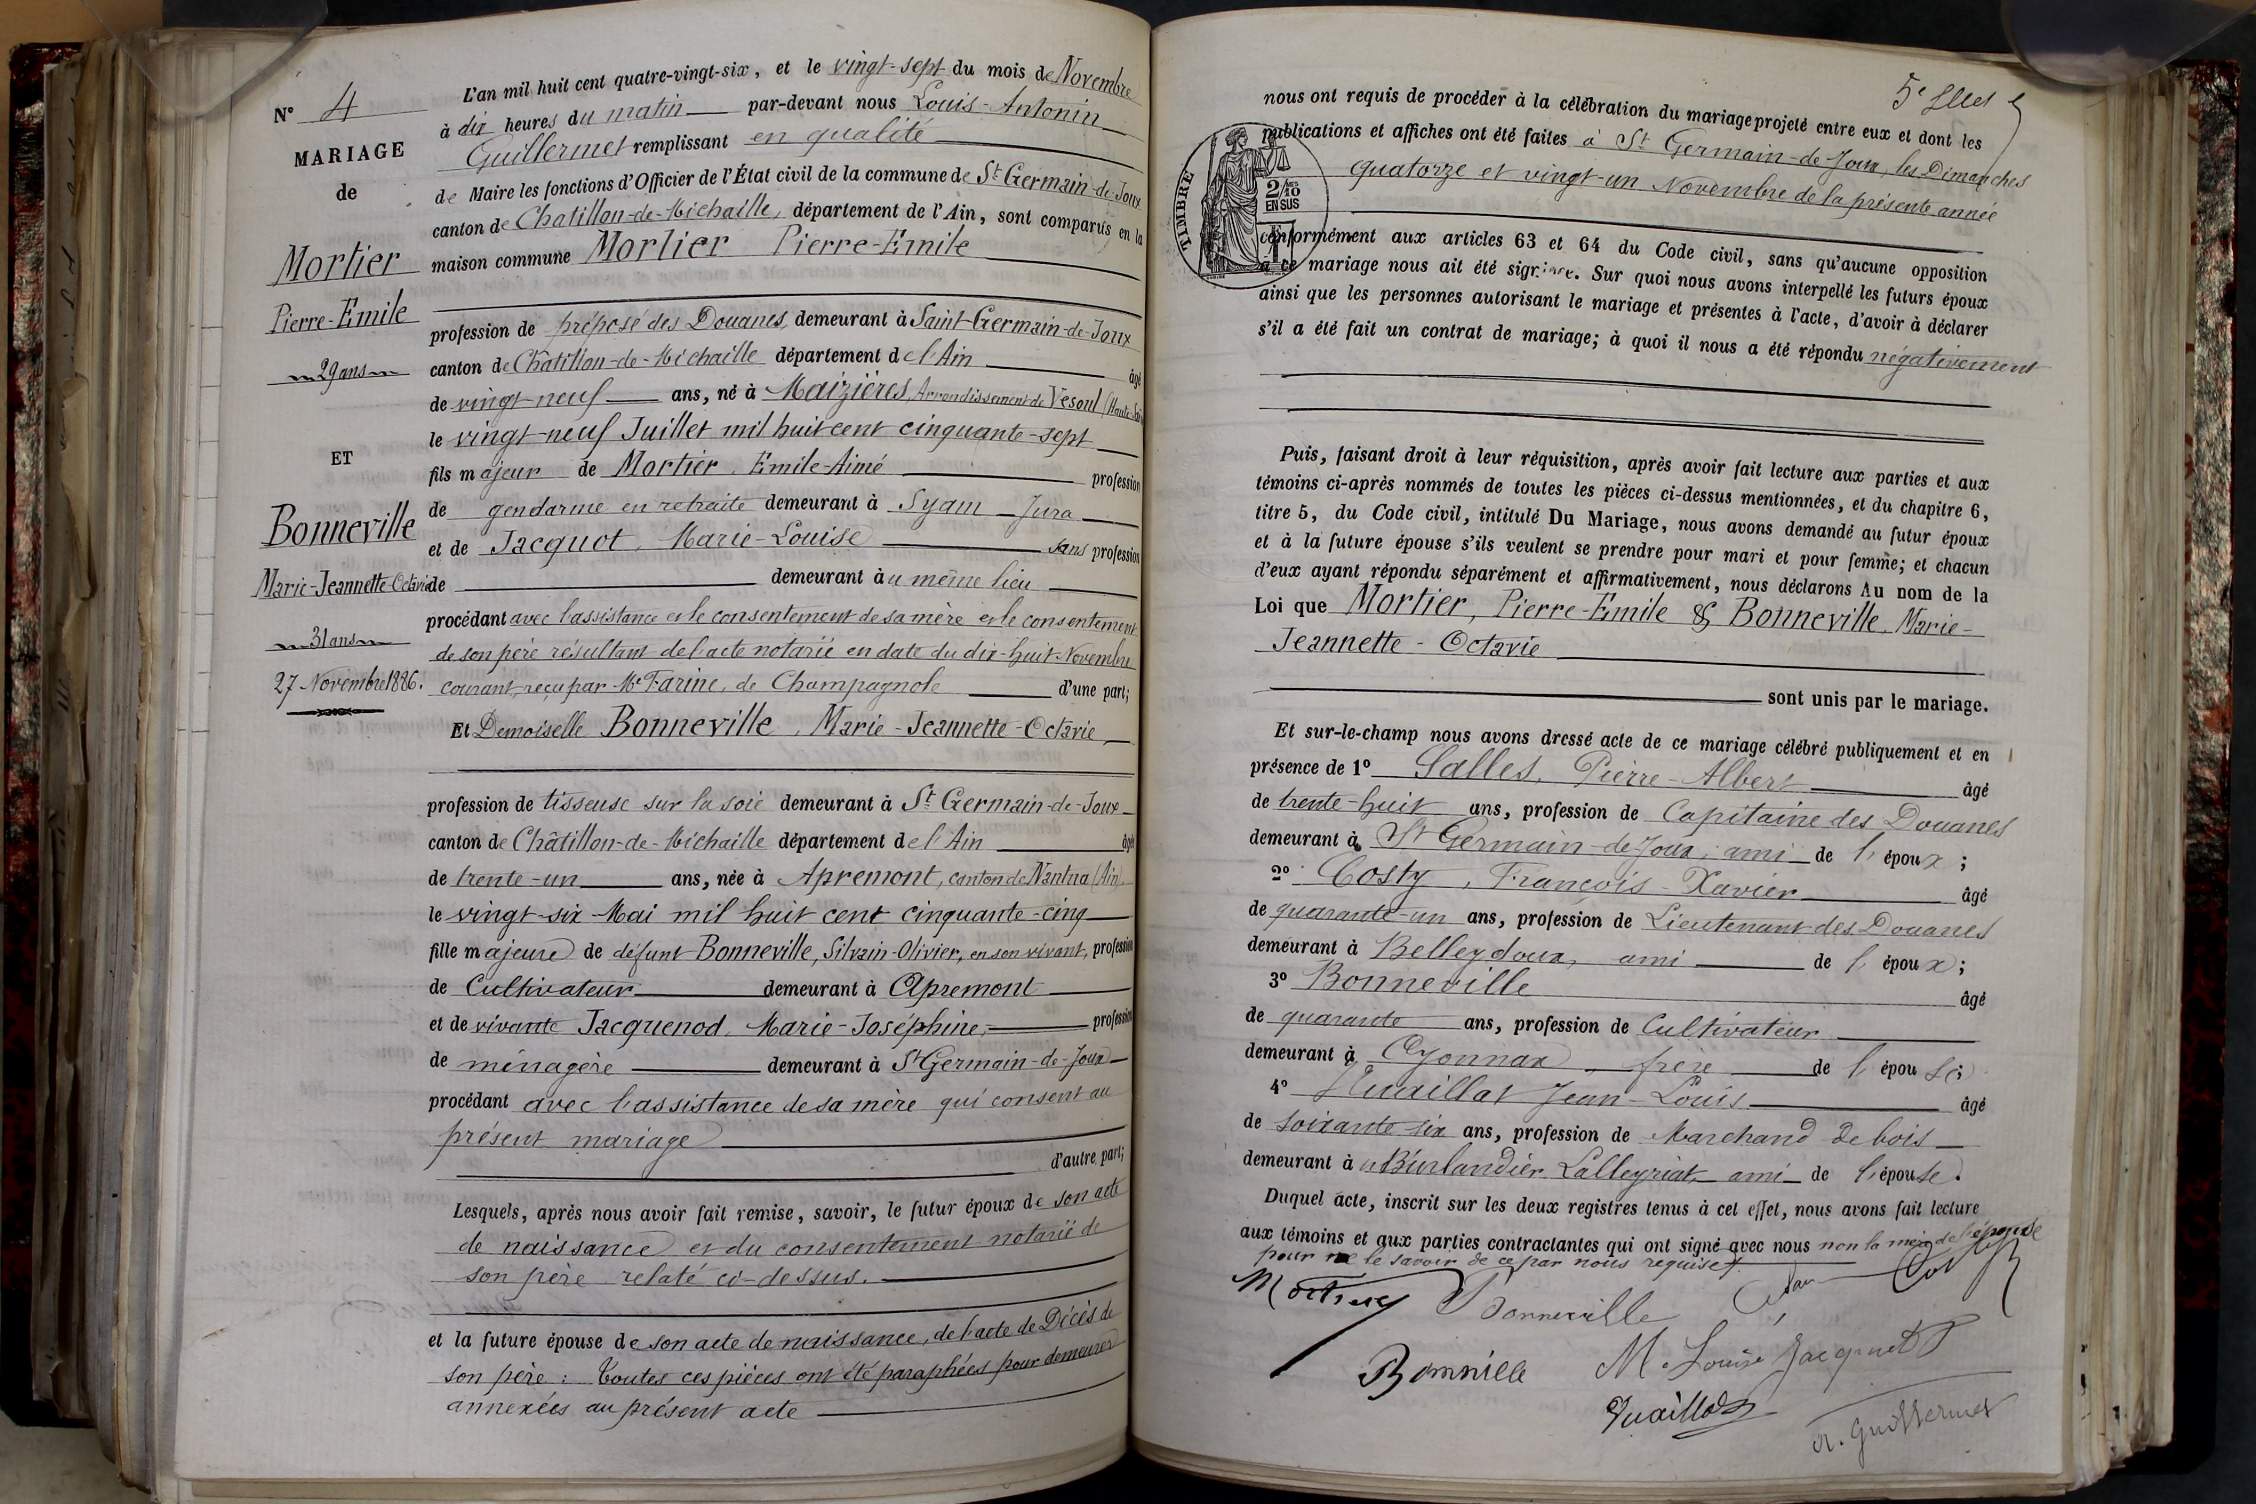 N° 4
MARIAGE
de
Mortier
Pierre-Emile
29 ans
ET
Bonneville
Marie-Jeannette-Octavie
31 ans
27 Novembre 1886.
L'an mil huit cent quatre-vingt-six, et le vingt-sept du mois de Novembre
à dix heures du matin par-devant nous Louis-Antonin
Guillermet remplissant en qualité
de Maire les fonctions d'Officier de l'État civil de la commune de St Germain-de-Joux
canton de Chatillon-de-Michaille, département de l'Ain, sont comparus en la
maison commune Mortier Pierre-Emile
profession de préposé des Douanes, demeurant à Saint-Germain-de-Joux
canton de Châtillon-de-Michaille département de l'Ain âgé
de vingt-neuf ans, né à Maizières, Arrondissement de Vesoul (Haute-Saône
le vingt-neuf Juillet mil huit cent cinquante-sept
fils majeur de Mortier, Emile-Aimé profession
de gendarme en retraite demeurant à Syam Jura
et de Jacquot, Marie-Louise sans profession
de demeurant au même lieu
procédant avec l'assistance et le consentement de sa mère et le consentement
de son père résultant de l'acte notarié en date du dix-huit Novembre
courant, reçu par Me Farine, de Champagnole d'une part;
Et Demoiselle Bonneville, Marie-Jeannette-Octavie,
profession de tisseuse sur la soie demeurant à St Germain-de-Joux
canton de Châtillon-de-Michaille département de l'Ain âgé
de trente-un ans, née à Apremont, canton de Nantua (Ain)
le vingt-six Mai mil huit cent cinquante-cinq
fille majeure de défunt Bonneville, Silvain-Olivier, en son vivant, profession
de Cultivateur demeurant à Apremont
et de vivante Jacquenod, Marie-Joséphine, profession
de ménagère demeurant à St Germain-de-Joux
procédant avec l'assistance de sa mère qui consent au
présent mariage
d'autre part;
Lesquels, après nous avoir fait remise, savoir, le futur époux de son acte
de naissance et du consentement notarié de
son père relaté ci-dessus.
et la future épouse de son acte de naissance, de l'acte de Décès de
son père : Toutes ces pièces ont été paraphées pour demeurer
annexées au présent acte
5e
nous ont requis de procéder à la célébration du mariage projeté entre eux et dont les
publications et affiches ont été faites à St Germain-de-Joux, les Dimanches
quatorze et vingt-un Novembre de la présente année
TIMBRE
2/10
EN SUS
conformément aux articles 63 et 64 du Code civil, sans qu'aucune opposition
à ce mariage nous ait été signifiée. Sur quoi nous avons interpellé les futurs époux
ainsi que les personnes autorisant le mariage et présentes à l'acte, d'avoir à déclarer
s'il a été fait un contrat de mariage; à quoi il nous a été répondu négativement
Puis, faisant droit à leur réquisition, après avoir fait lecture aux parties et aux
témoins ci-après nommés de toutes les pièces ci-dessus mentionnées, et du chapitre 6,
titre 5, du Code civil, intitulé Du Mariage, nous avons demandé au futur époux
et à la future épouse s'ils veulent se prendre pour mari et pour femme; et chacun
d'eux ayant répondu séparément et affirmativement, nous déclarons Au nom de la
Loi que Mortier, Pierre-Emile & Bonneville, Marie-
Jeannette-Octavie
sont unis par le mariage.
Et sur-le-champ nous avons dressé acte de ce mariage célébré publiquement et en
présence de 1° Salles, Pierre-Albert âgé
de trente-huit ans, profession de Capitaine des Douanes
demeurant à St Germain-de-Joux, ami de l'époux;
2° Costy, François-Xavier âgé
de quarante-un ans, profession de Lieutenant des Douanes
demeurant à Belleydoux, ami de l'époux;
3° Bonneville âgé
de quarante ans, profession de Cultivateur
demeurant à Oyonnax, frère de l'épouse;
4° Vuaillat Jean-Louis âgé
de soixante-six ans, profession de Marchand de bois
demeurant à Burlandier Lalleyriat, ami de l'épouse.
Duquel acte, inscrit sur les deux registres tenus à cet effet, nous avons fait lecture
aux témoins et aux parties contractantes qui ont signé avec nous non la mère de l'épouse
pour ne le savoir de ce par nous requise.
Mortier Bonneville
Bonneville M. Louise Jacquot
Vuaillat
A. Guillermet